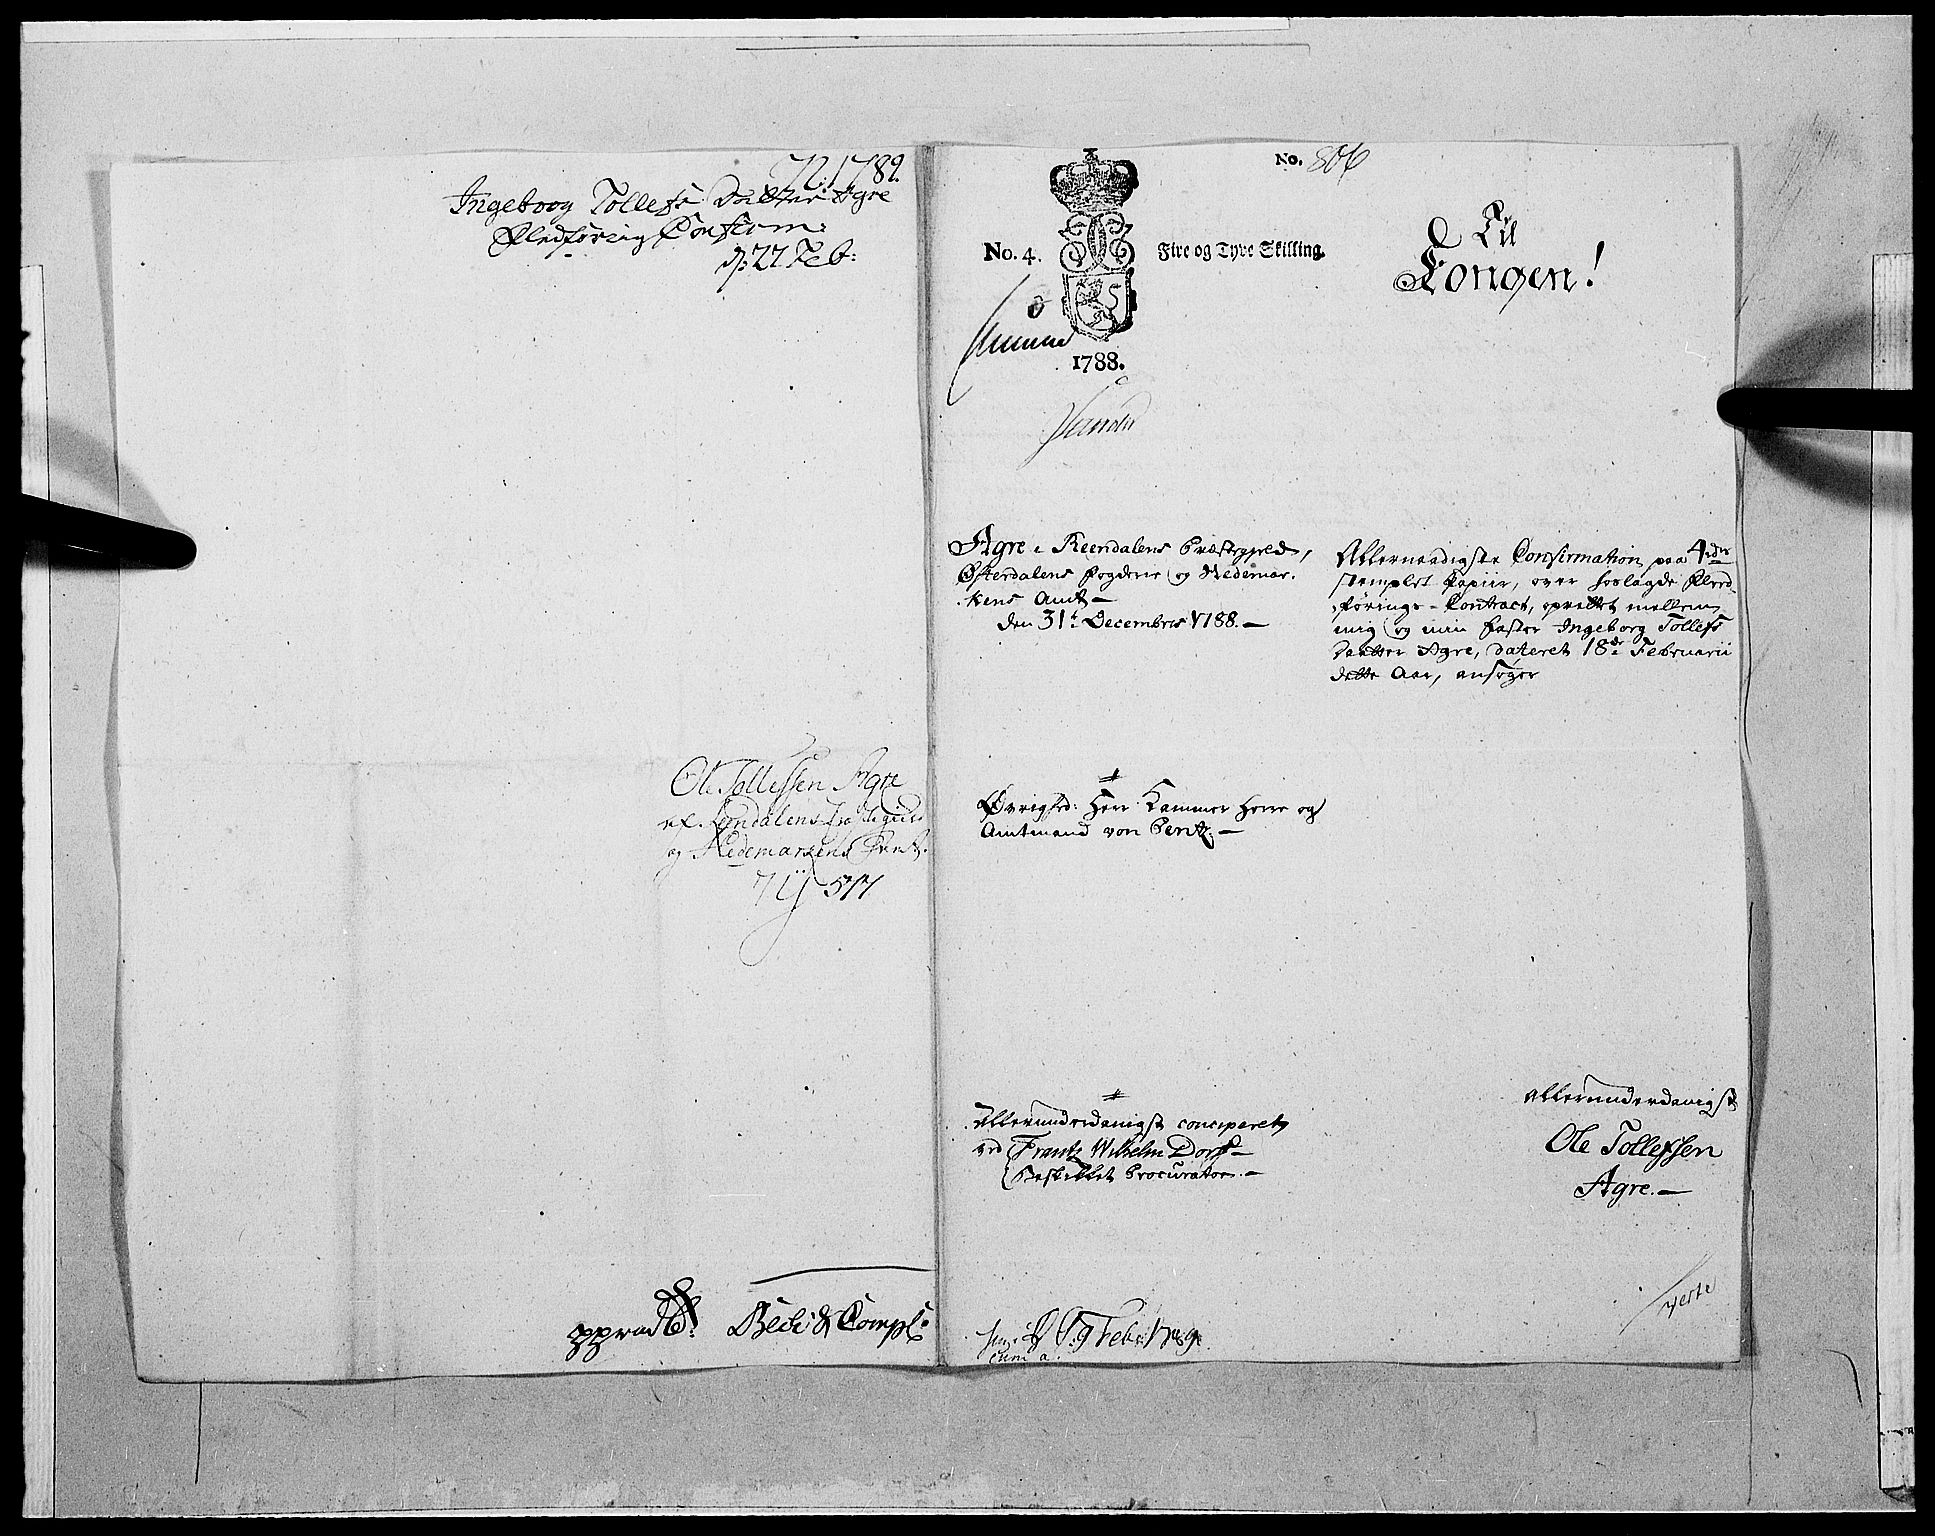 72. 1789.
Ingeborg Tollefs Datter Agre
Fledføring Confirm:
d: 27 Feb:
Ole Tollefsen Agre
af Reendalens Præstegield
og Hedemarkens Amt.
577
approb: Bech & Compl:
No. 806
No. 4. Fire og Tyve Skilling.
1788.
Til
Kongen!
Agre i Reendalens Præstegield,
Østerdalens Fogderie og Hedemar-
kens Amt —
den 31te Decembris 1788. —
Allernaadigste Confirmation paa 4de
stemplet Papiir, over hoslagde Fled-
førings-Contract, oprettet mellem
mig og min Faster Ingeborg Tollefs
Datter Agre, dateret 18de Februarii
dette Aar, ansøger
Øvrighed: Herr Kammer Herre og
Amtmand von Pentz. —
Allerunderdanigst conciperet
ved Frantz Wilhelm Dorf —
Beskikket Procurator. —
Allerunderdanigst
Ole Tollefsen
Agre. —
verte
9 Feb: 1789.